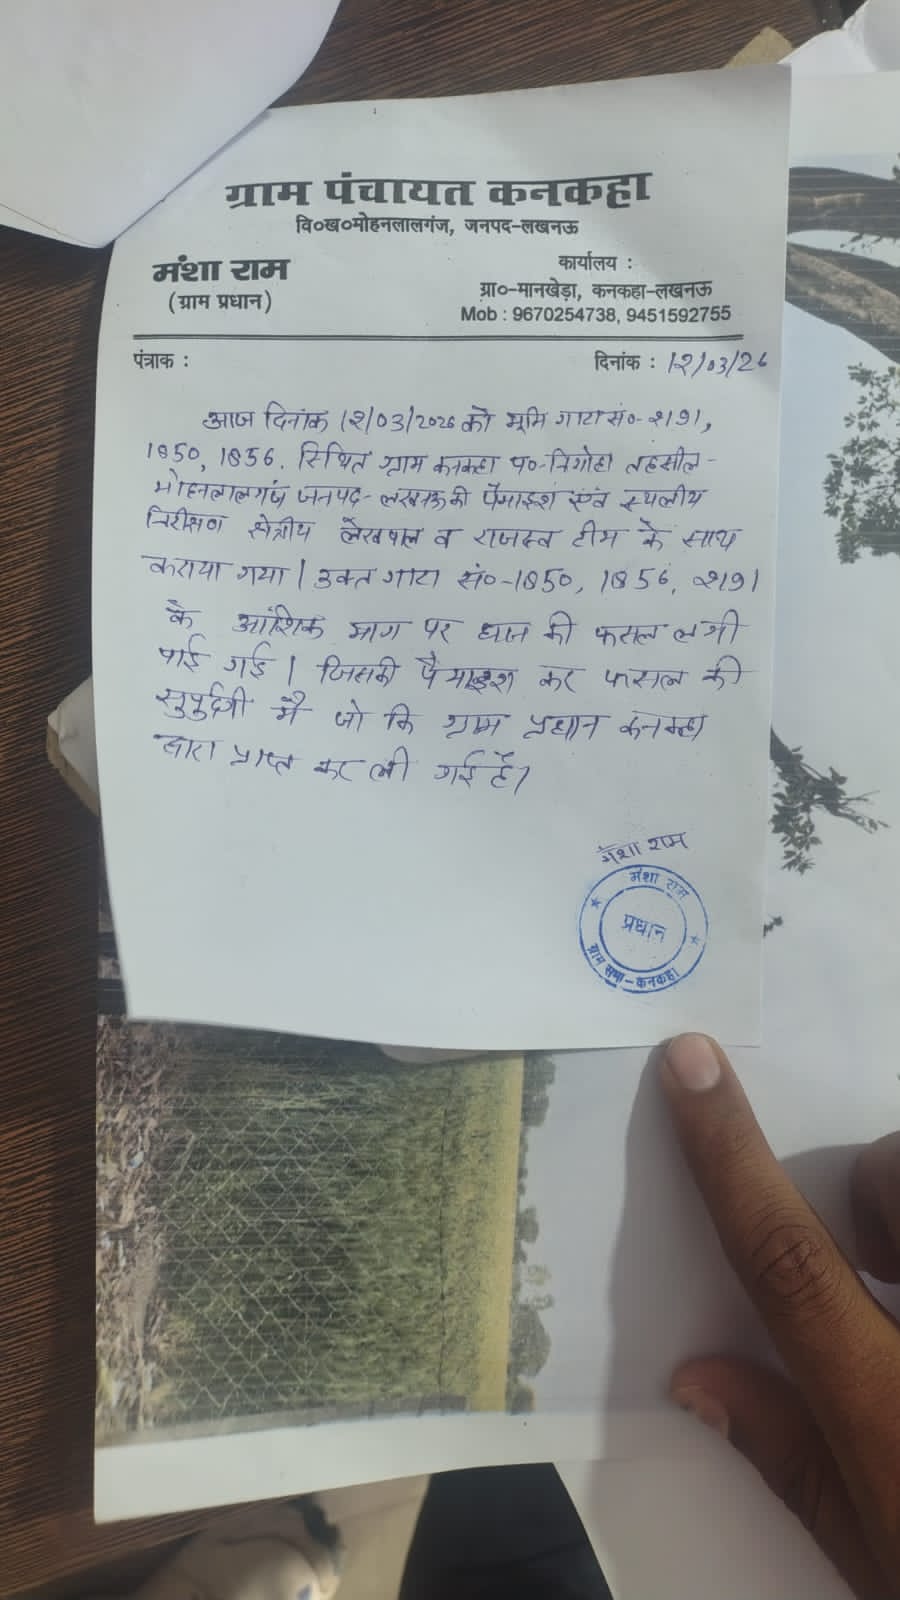 ग्राम पंचायत कनकहा
वि०ख०मोहनलालगंज, जनपद-लखनऊ
मंशा राम
(ग्राम प्रधान)
कार्यालय :
ग्रा०-मानखेड़ा, कनकहा-लखनऊ
Mob : 9670254738, 9451592755
पंत्राक :
दिनांक : 12/03/26
आज दिनांक 12/03/2026 को भूमि गाटा सं०- २191,
1850, 1856. स्थित ग्राम कनकहा प०-निगोहा तहसील-
मोहनलालगंज जनपद-लखनऊ की पैमाइश एवं स्थलीय
निरीक्षण क्षेत्रीय लेखपाल व राजस्व टीम के साथ
कराया गया। उक्त गाटा सं०-1850, 1856, २191
के आंशिक भाग पर धान की फसल लगी
पाई गई। जिसकी पैमाइश कर फसल की
सुपुर्दगी में जो कि ग्राम प्रधान कनकहा
द्वारा प्राप्त कर ली गई है।
मंशा राम
मंशा राम
प्रधान
ग्राम सभा-कनकहा